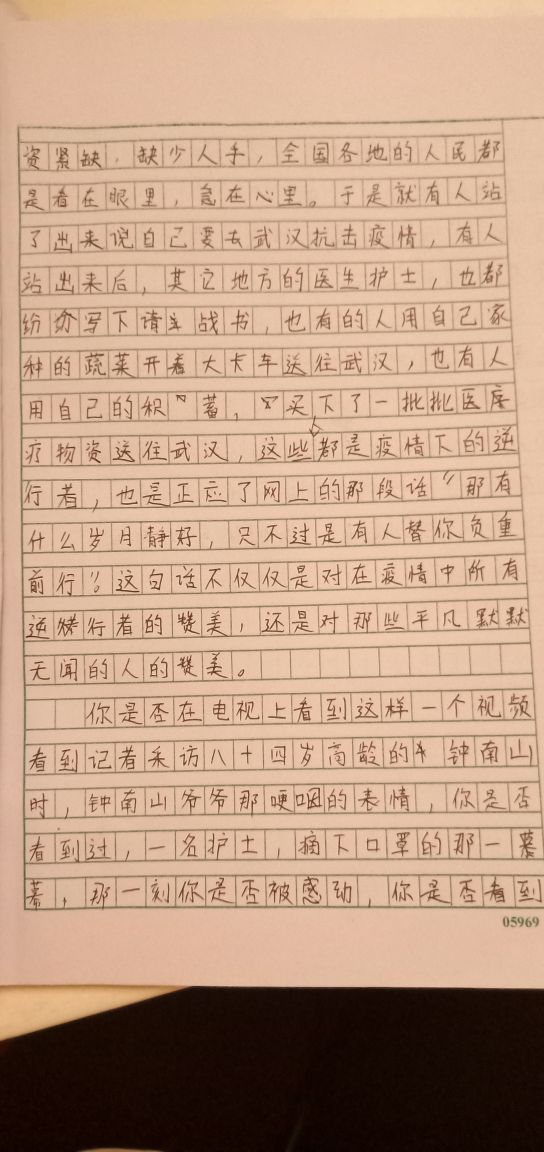 资紧缺,缺少人手,全国各地的人民都
是看在眼里,急在心里。于是就有人站
了出来说自己要去武汉抗击疫情,有人
站出来后,其它地方的医生护士,也都
纷纷写下请战书,也有的人用自己家
种的蔬菜开着大卡车送往武汉,也有人
用自己的积蓄,买下了一批批医
疗物资送往武汉,这些都是疫情下的逆
行者,也是正应了网上的那段话"那有
什么岁月静好,只不过是有人替你负重
前行"。这句话不仅仅是对在疫情中所有
逆行者的赞美,还是对那些平凡默默
无闻的人的赞美。
你是否在电视上看到这样一个视频
看到记者采访八十四岁高龄的钟南山
时,钟南山爷爷那哽咽的表情,你是否
看到过,一名护士,摘下口罩的那一
幕,那一刻你是否被感动,你是否看到
05969